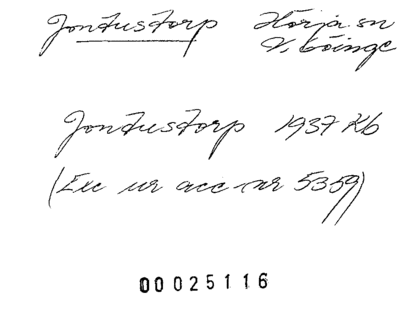 Jontustorp Hörja sn
V. Göinge
Jontustorp 1937 Kb
(Exc ur acc nr 5359)
00025116